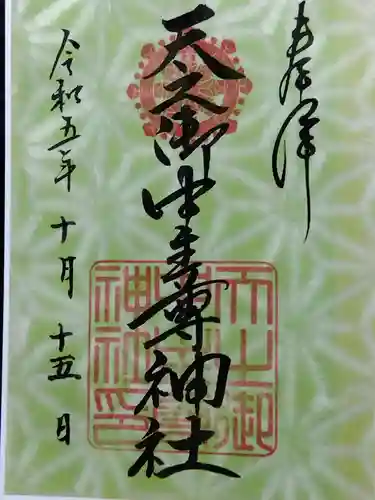 奉拝
天之御中主尊神社
令和五年十月十五日